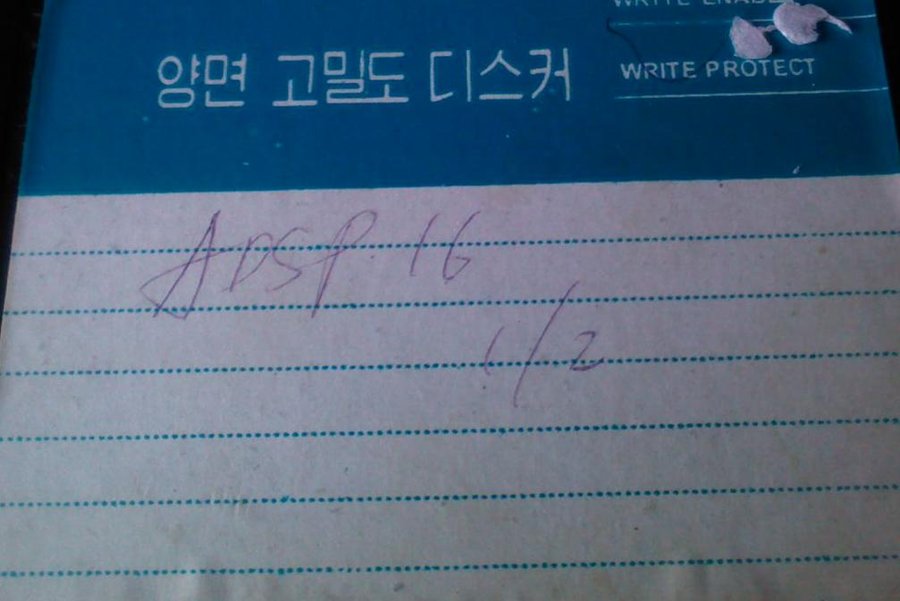 WRITE ENABLE
양면 고밀도 디스커
WRITE PROTECT
ADSP. 16
1/2